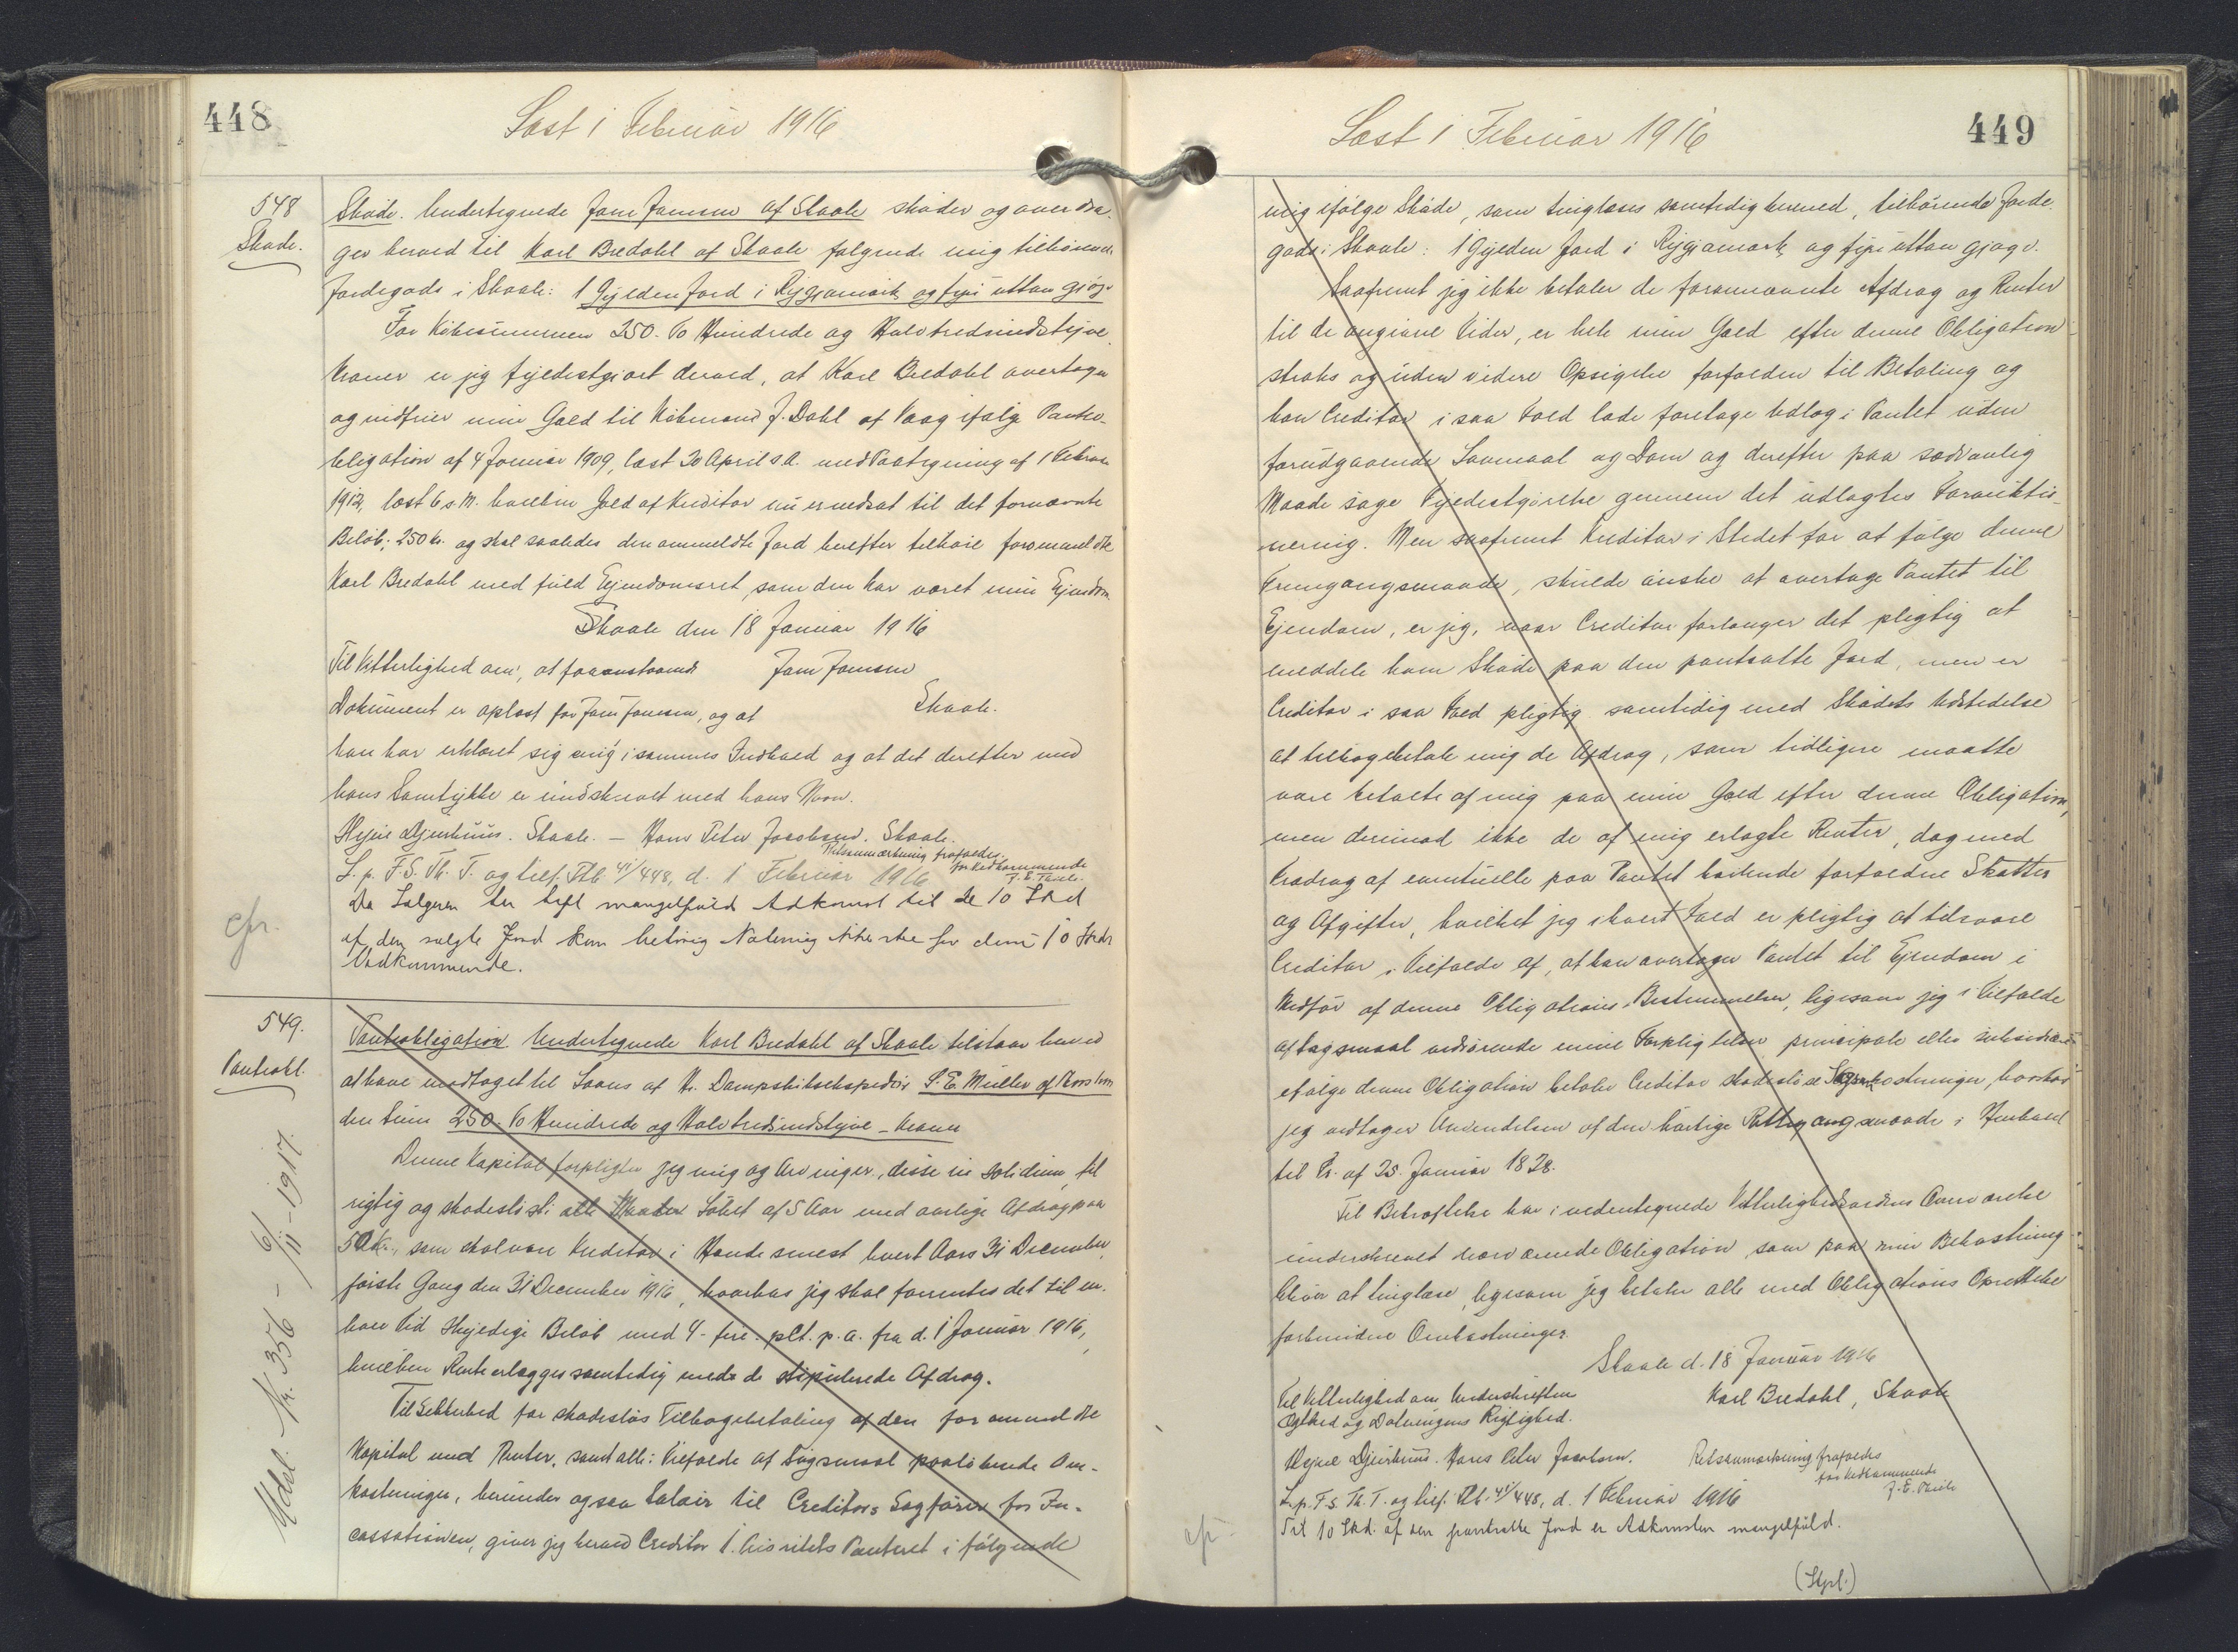 448
Læst 1 Februar 1916
548
Skøde.
Skøde. Undertegnede Jam Jamsen af Skaale skøder og overdra-
ger herved til Karl Bredahl af Skaale følgende mig tilhørende
Jordegods i Skaale: 1 Gylden Jord i og fyri uttan gjógv
For Købesummen 250. To Hundrede og Halvtredsindstyve
Kroner er jeg fyldestgjort derved, at Karl Bredahl overtager
og indfrier min Gæld til Købmand J. Dahl af Vaag ifølge Panteo-
bligation af 4 Januar 1909, læst 20 April s.A. med Paategning af 1 Februar
1912, læst 6 s.M. hvilken Gæld af Kreditor nu er nedsat til det fornævnte
Beløb; 250 Kr. og skal saaledes den ommeldte Jord herefter tilhøre foranmeldte
Karl Bredahl med fuld Ejendomsret, som den har været min Ejendom.
Skaale den 18 Januar 1916
Til Vitterlighed om, at foranstaaende Jam Jamsen
Dokument er oplæst for Jam Jamsen, og at Skaale.
han har erklæret sig enig i sammes Indhold og at det derefter med
hans Samtykke er underskrevet med hans Navn.
Djurhuus. Skaale. – Hans Peter Jacobsen. Skaale.
Retsanmærkning frafaldes.
for Vedkommende
L. p. F.S. Th. T. og tilf. Ptb. 41/448, d. 1 Februar 1916
Da Sælgeren har mangelfuld Adkomst til de 10 Skd
af den solgte Jord kun for den 10 Skds
Vedkommende.
cfr.
549.
Panteobl.
Panteobligation. Undertegnede Karl Bredahl af Skaale tilstaar herved
at have modtaget til Laans af Hr. Dampskibsekspeditør S. E. Müller af Thorshavn
den Sum 250. To Hundrede og Halvtredsindstyve – Kroner
Denne Kapital forpligter jeg mig og Arvinger, disse in solidum, til
rigtig og skadesløst i alle Maader i Løbet af 5 Aar med aarlige Afdrag paa
50 Kr., som skal være Kreditor i Hænde senest hvert Aars 31 December,
første Gang den 31 December 1916, hvorhos jeg skal forrente det til en-
hver Tid skyldige Beløb med 4 - fire - pCt. p.a. fra d. 1 Januar 1916,
hvilken Rente erlægges samtidig med de stipulerede Afdrag.
Til Sikkerhed for skadesløs Tilbagebetaling af den foranmeldte
Kapital med Renter, samt alle i Tilfælde af Søgsmaal paaløbende Om-
kostninger, herunder ogsaa Salair til Creditors Sagfører for In-
cassationen, giver jeg herved Creditor 1. Prioritets Panteret i følgende
Udsl. Nr. 356 – 6/11 – 1917.
449
Læst 1 Februar 1916
mig ifølge Skøde, som tinglæses samtidig hermed, tilhørende Jorde-
gods i Skaale: 1 Gylden Jord i og fyri uttan gjógv.
Saafremt jeg ikke betaler de forannævnte Afdrag og Renter
til de angivne Tider, er hele min Gæld efter denne Obligation
straks og uden videre Opsigelse forfalden til Betaling og
kan Creditor i saa Fald lade foretage Udlæg i Pantet uden
forudgaaende Søgsmaal og Dom og derefter paa sædvanlig
Maade søge Fyldestgørelse gennem det udlagtes Forauktio-
nering. Men saafremt Kreditor i Stedet for at følge denne
Fremgangsmaade, skulde ønske at overtage Pantet til
Ejendom, er jeg, naar Creditor forlanger det pligtig at
meddele ham Skøde paa den pantsatte Jord, men er
Creditor i saa Fald pligtig samtidig med Skødets Udstedelse
at tilbagebetale mig de Afdrag, som tidligere maatte
være betalte af mig paa min Gæld efter denne Obligation,
men derimod ikke de af mig erlagte Renter, dog med
Fradrag af eventuelle paa Pantet hæftende forfaldne Skatter
og Afgifter, hvilket jeg i hvert Fald er pligtig at tilsvare
Creditor i Tilfælde af, at han overtager Pantet til Ejendom i
Medfør af denne Obligations Bestemmelser, ligesom jeg i Tilfælde
af Søgsmaal vedrørende mine Forpligtelser principale eller subsidiære
ifølge denne Obligation betaler Creditor skadesløse Sagsomkostninger, hvorhos
jeg vedtager Anvendelsen af den hurtige Retsgangsmaade i Henhold
til Fr. af 25. Januar 1828.
Til Bekræftelse har i nedentegnede Vitterlighedsvidners Overværelse
underskrevet nærværende Obligation, som paa min Bekostning
bliver at tinglæse, ligesom jeg betaler alle med Obligations Oprettelse
forbundne Omkostninger.
Skaale d. 18 Januar 1916
Til Vitterlighed om Underskriftens Karl Bredahl, Skaale
Ægthed og Dateringens Rigtighed.
Djurhuus. Hans Peter Jacobsen. Retsanmærkning frafaldes
for Vedkommende
L. p. F.S. Th. T. og tilf. Ptb. 41/448, d. 1 Februar 1916
Til 10 Skd. af den pantsatte Jord er Adkomsten mangelfuld.
cfr.